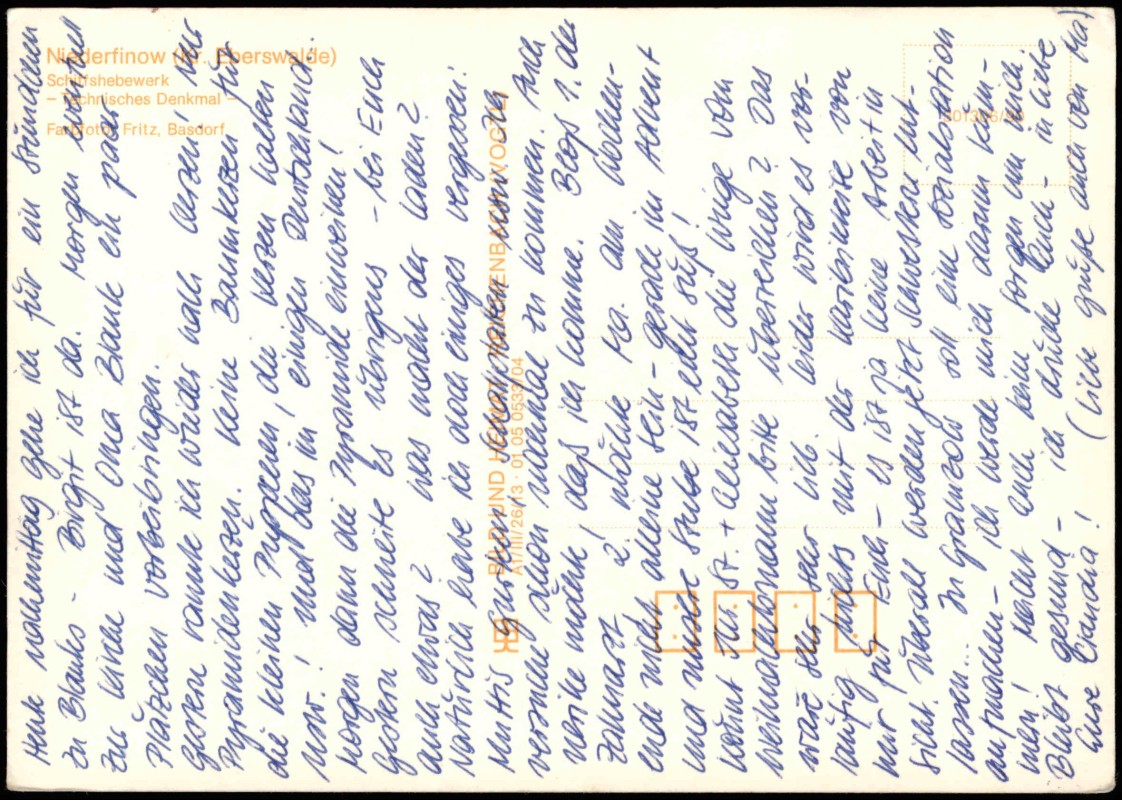 Niederfinow (Kr. Eberswalde)
Schiffshebewerk
– Technisches Denkmal –
Farbfoto: Fritz, Basdorf
BILD UND HEIMAT REICHENBACH (VOGTL)
A1/III/26/13 · 01 05 0533/04
Heute nachmittag gehe ich für ein Stündchen
zu Blanks – Birgit ist da. Morgen
zur Kirche und Oma Blank ein paar
Plätzchen vorbeibringen.
Gestern rannte ich wieder nach Kerzen, nur
Pyramidenkerzen. Keine Baumkerzen für
die kleinen Püppchen, die Kerzen halten
nur! Und das im einigen Deutschland.
Morgen dann die Pyramide einweihen!
Gestern schneite es übrigens – bei Euch
auch etwas? Was macht der Laden?
Natürlich habe ich doch einiges vergessen:
Muttis
versuche schon nochmal zu kommen. Auch
daß ich komme. Blog 1. der
Zahnarzt u. 2. möchte ka. am Wochen-
ende nicht alleine sein – gerade im Advent
und meine Stube ist echt süß!
Könnt Ihr St. + Annelisbeth die Zwige vom
Weihnachtsmann bitte überreichen? Das
wäre sehr sehr lieb. Leider wird es vor-
läufig nichts mit der Kaslsuite von
mir für Euch – es ist ja keine Arbeit in
Sicht. Überall werden jetzt Schwestern ent-
lassen... In Granzow soll eine Sozialstation
aufmachen – ich werde mich dann küm-
mern! Macht Euch keine Sorgen um mich.
Bleibt gesund – ich drücke Euch – in Liebe
Eure Claudia! (Liebe Grüße auch von ka)